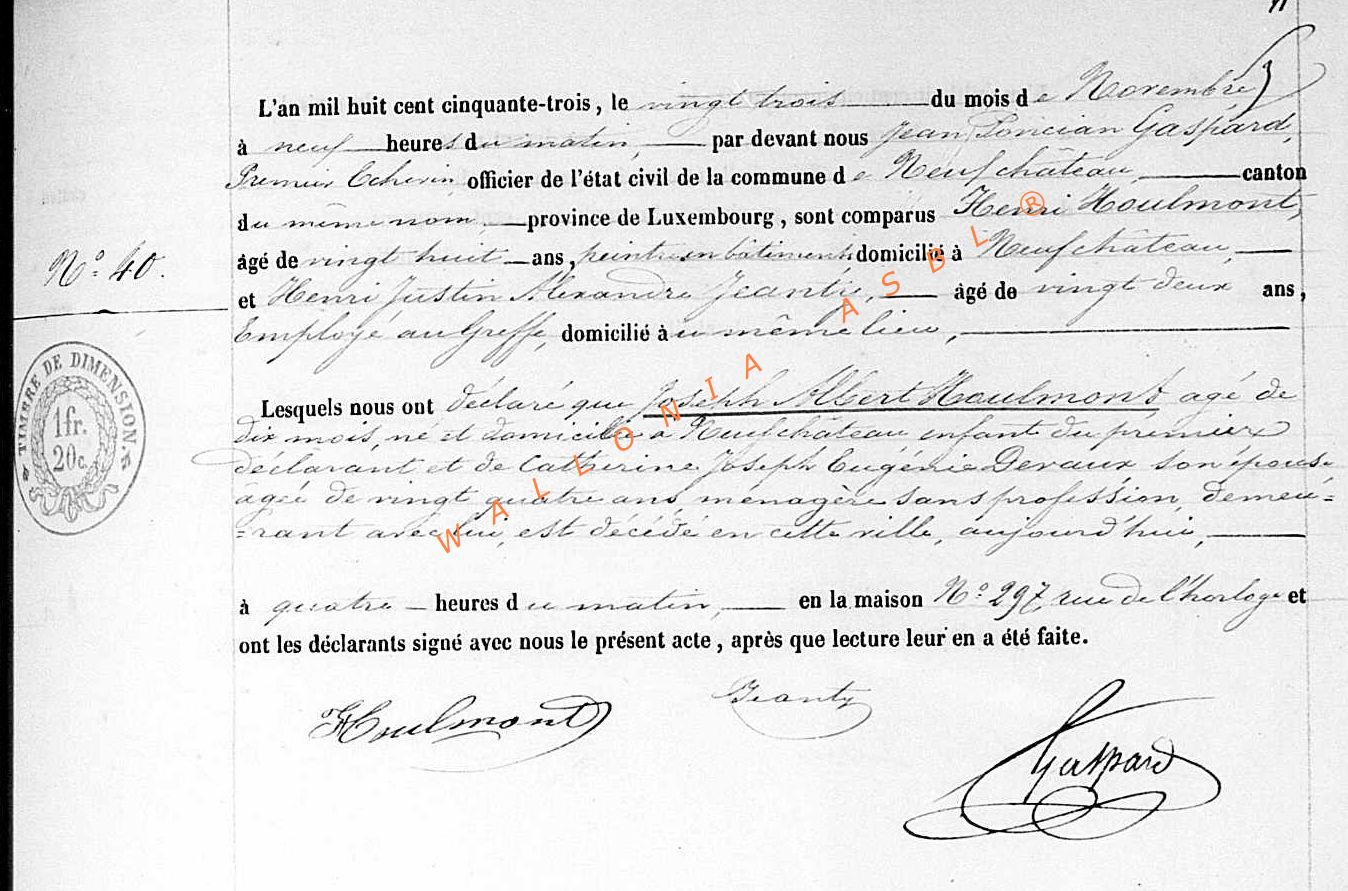 L'an mil huit cent cinquante-trois, le vingt trois du mois de Novembre
à neuf heures du matin, par devant nous Jean Gaspard,
Premier Echevin officier de l'état civil de la commune de Neufchâteau, canton
du même nom, province de Luxembourg, sont comparus Henri Houlmont,
âgé de vingt huit ans, peintre en bâtiments, domicilié à Neufchâteau,
N° 40.
et Henri Justin Alexandre Jeanty, âgé de vingt deux ans,
Employé au Greffe, domicilié au même lieu,
TIMBRE DE DIMENSION
1 fr.
20 c.
Lesquels nous ont déclaré que Joseph Albert Houlmont, agé de
dix mois, né et domicilié à Neufchâteau enfant du premier
déclarant et de Catherine Joseph Eugénie Devaux son épouse
âgée de vingt quatre ans ménagère sans profession, demeu=
=rant avec lui, est décédé en cette ville, aujourd'hui,
à quatre heures du matin, en la maison N° 297, rue de l'horloge et
ont les déclarants signé avec nous le présent acte, après que lecture leur en a été faite.
Houlmont Jeanty
Gaspard
WALLONIA ASBL®